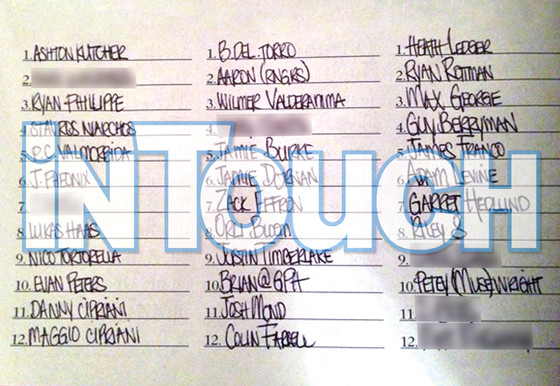 1. ASHTON KUTCHER
2.
3. RYAN PHILIPPE
4. STAVROS NIARCHOS
5. P.C. VALMORBIDA
6. J. PHEONIX
7.
8. LUKAS HAAS
9. NICO TORTORELLA
10. EVAN PETERS
11. DANNY CIPRIANI
12. MAGGIO CIPRIANI
1. B. DEL TORRO
2. AARON (RNGRS)
3. WILMER VALDERAMMA
4.
5. JAMIE BURKE
6. JAMIE DORNAN
7. ZACK EFFRON
8. ORLI BLOOM
9. JUSTIN TIMBERLAKE
10. BRIAN @ CPA
11. JOSH MOND
12. COLIN FARRELL
1. HEATH LEDGER
2. RYAN ROTTMAN
3. MAX GEORGE
4. GUY BERRYMAN
5. JAMES FRANCO
6. ADAM LEVINE
7. GARRET HEDLUND
8. RILEY S
9.
10. PETEY (MUSE) WRIGHT
11.
12.
INTOUCH